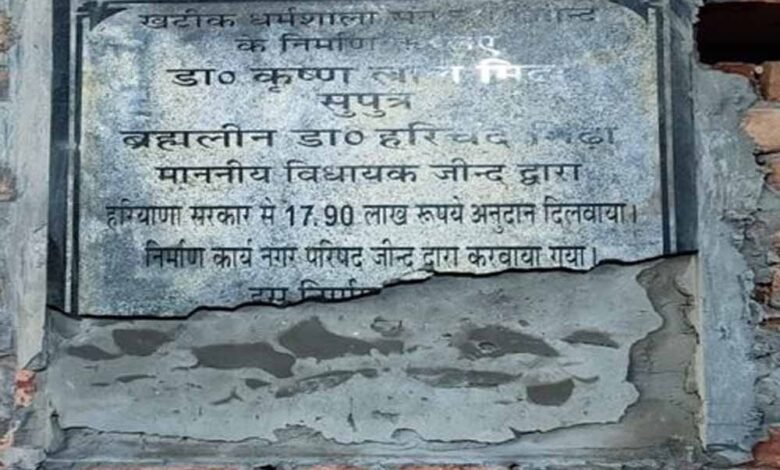 खटीक धर्मशाला जीन्द
के निर्माण के लिए
डा० कृष्ण लाल मिढा
सुपुत्र
ब्रह्मलीन डा० हरिचंद मिढ़ा
माननीय विधायक जीन्द द्वारा
हरियाणा सरकार से 17.90 लाख रूपये अनुदान दिलवाया।
निर्माण कार्य नगर परिषद जीन्द द्वारा करवाया गया।